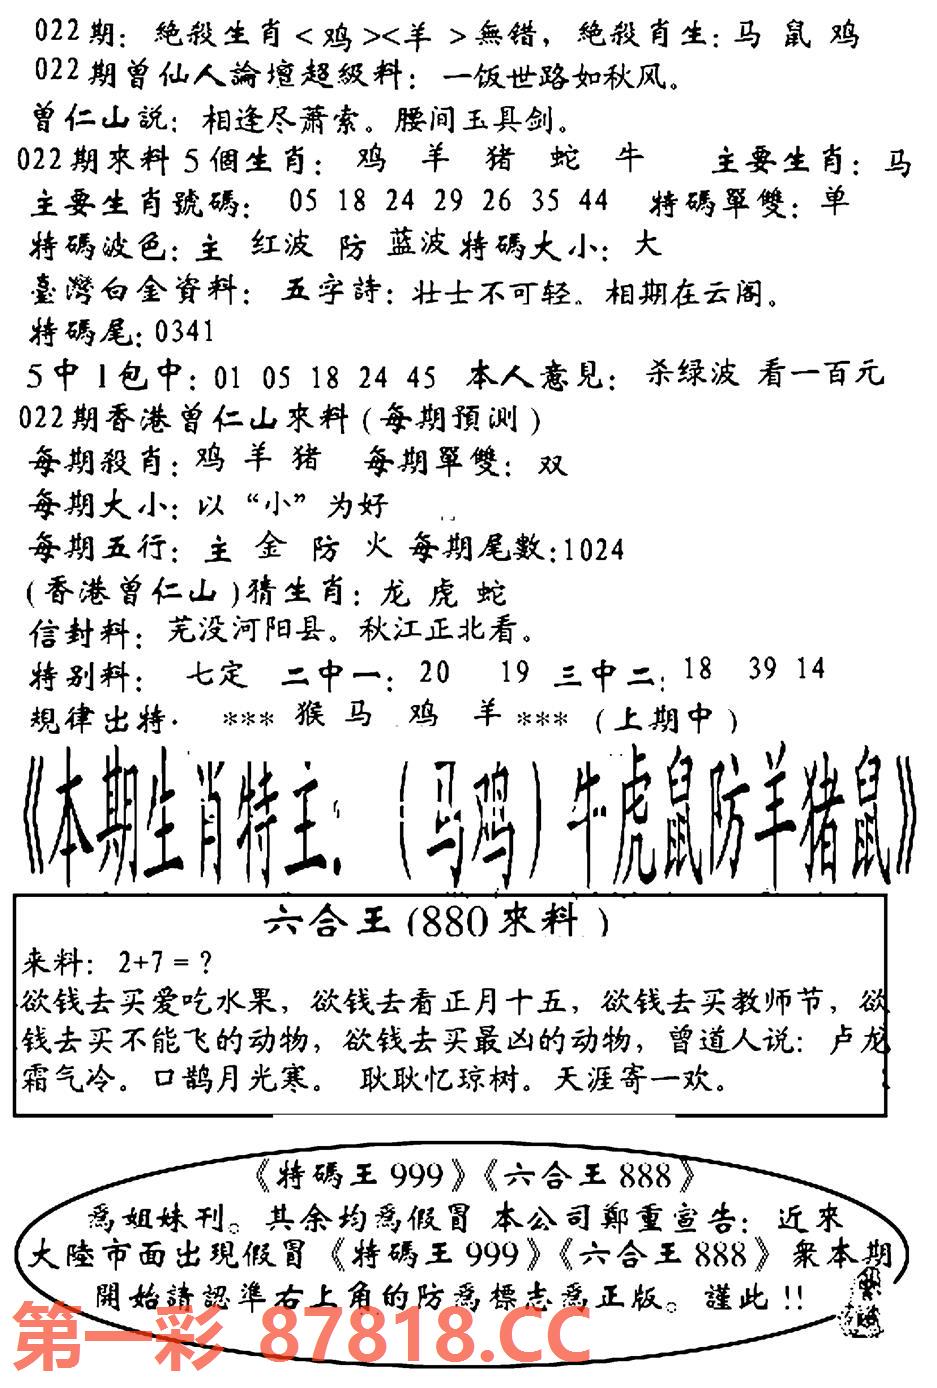 022期：絶殺生肖<鸡><羊>無错，絶殺肖生：马 鼠 鸡
022期曾仙人論壇超級料：一饭世路如秋风。
曾仁山説：相逢尽萧索。腰间玉具剑。
022期來料5個生肖： 鸡 羊 猪 蛇 牛 主要生肖：马
主要生肖號碼： 05 18 24 29 26 35 44 特碼單雙：单
特碼波色：主 红波 防 蓝波 特碼大小：大
臺灣白金資料：五字詩：壮士不可轻。相期在云阁。
特碼尾：0341
5中1包中：01 05 18 24 45 本人意見：杀绿波 看一百元
022期香港曾仁山來料(每期預测)
每期殺肖：鸡 羊 猪 每期單雙：双
每期大小：以“小”为好
每期五行：主 金 防 火 每期尾數：1024
(香港曾仁山)猜生肖：龙 虎 蛇
信封料：芜没河阳县。秋江正北看。
特别料： 七定 二中一：20 19 三中二：18 39 14
規律出特· *** 猴 马 鸡 羊 *** (上期中)
《本期生肖特主：(马鸡)牛虎鼠防羊猪鼠》
六合王(880來料)
来料：2+7=？
欲钱去买爱吃水果，欲钱去看正月十五，欲钱去买教师节，欲
钱去买不能飞的动物，欲钱去买最凶的动物，曾道人说：卢龙
霜气冷。口鹊月光寒。 耿耿忆琼树。天涯寄一欢。
《特碼王999》《六合王888》
爲姐妹刊。其余均爲假冒 本公司鄭重宣告：近來
大陸市面出現假冒《特碼王999》《六合王888》衆本期
開始請認準右上角的防爲標志爲正版。謹此!!
第一彩 87818.CC